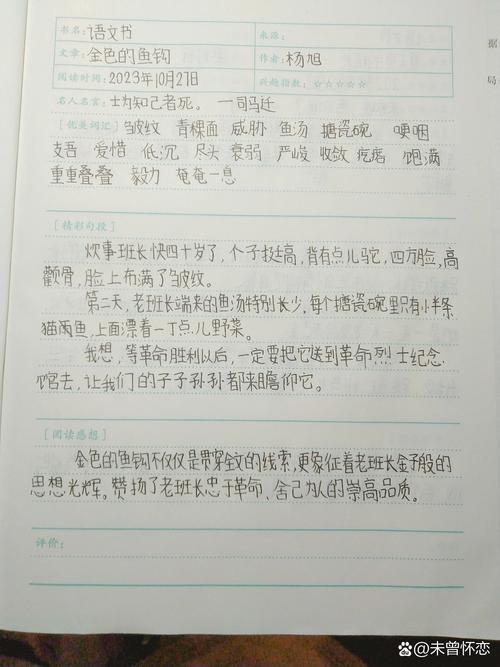 书名: 语文书 来源:
文章: 金色的鱼钩 作者: 杨旭
阅读时间: 2023年10月27日 兴趣指数: ☆☆☆☆☆
名人名言: 士为知己者死。 —司马迁
[优美词汇] 皱纹 青稞面 威胁 鱼汤 搪瓷碗 哽咽
支吾 爱惜 低沉 尽头 衰弱 严峻 收敛 疙瘩 饱满
重重叠叠 毅力 奄奄一息
[精彩句段]
炊事班长快四十岁了,个子挺高,背有点儿驼,四方脸,高
颧骨,脸上布满了皱纹。
第二天,老班长端来的鱼汤特别少,每个搪瓷碗里只有小半条
猫两鱼,上面漂着一丁点儿野菜。
我想,等革命胜利以后,一定要把它送到革命烈士纪念
馆去,让我们的子子孙孙都来瞻仰它。
[阅读感想]
金色的鱼钩不仅仅是贯穿全文的线索,更象征着老班长金子般的
思想光辉。赞扬了老班长忠于革命、舍己为人的崇高品质。
评价:
据
局
百家号/未曾怀恋